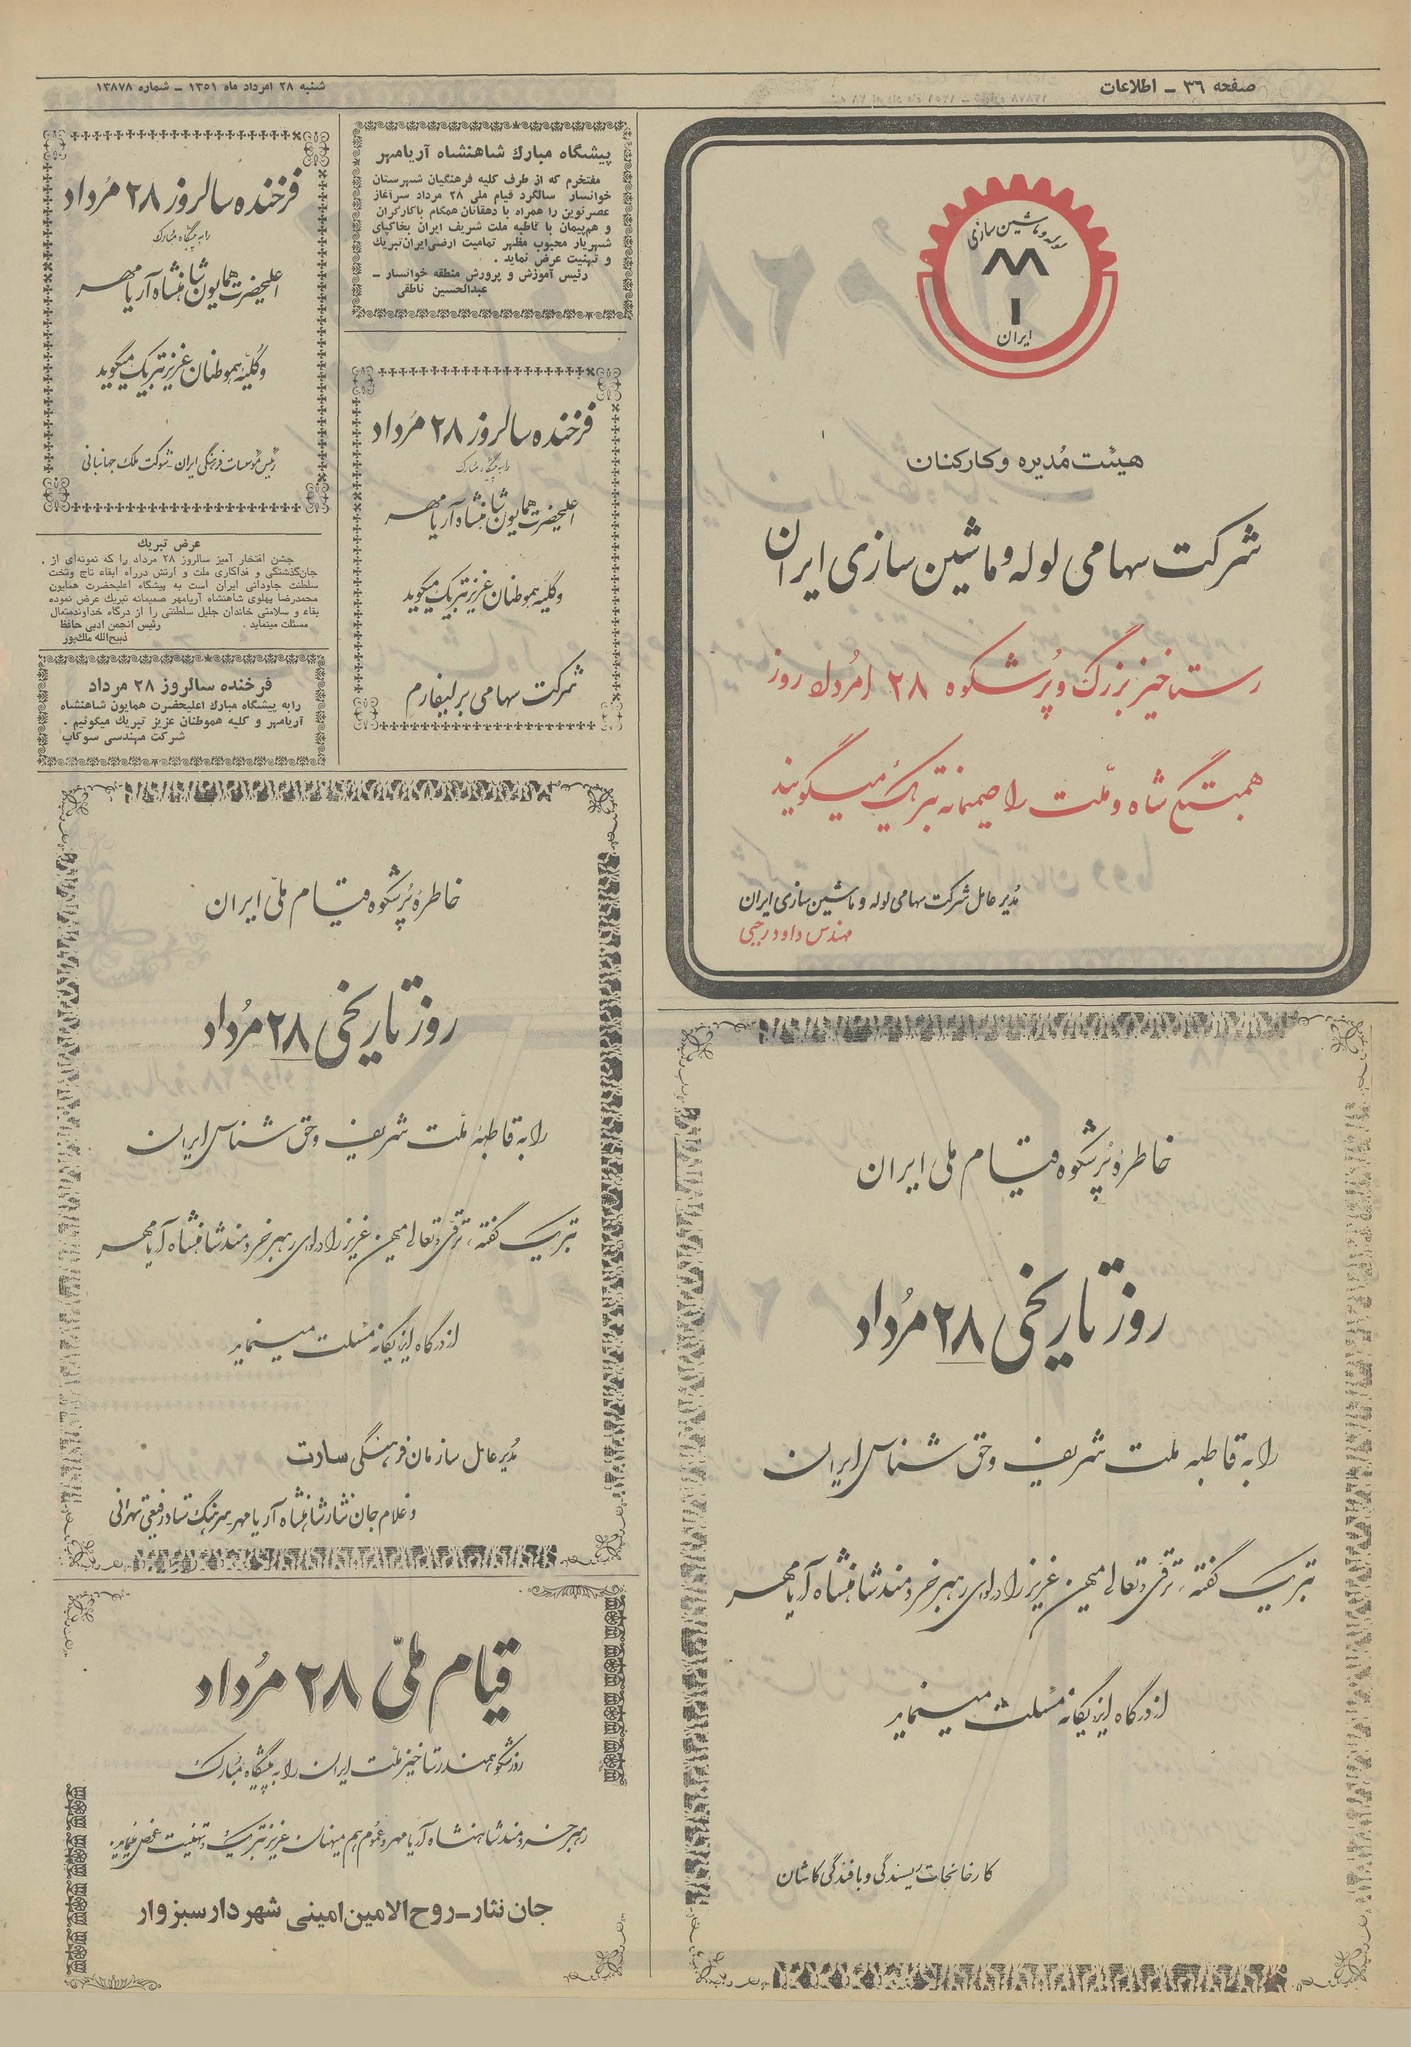 صفحه ۳۶ ـ اطلاعات
شنبه ۲۸ امرداد ماه ۱۳۵۱ ـ شماره ۱۳۸۷۸
لوله و ماشین سازی
ایران
هیئت مُدیره و کارکنان
شرکت سهامی لوله و ماشین سازی ایران
رستاخیز بزرگ و پُر شکوه ۲۸ امُرداد روز
همبستگی شاه و ملّت را صمیمانه تبریک میگویند
مُدیر عامل شرکت سهامی لوله و ماشین سازی ایران
مهندس داود رجبی
خاطره پُرشکوه قیام ملی ایران
روز تاریخی ۲۸ مُرداد
را به قاطبه ملت شریف و حق شناس ایران
تبریک گفته، ترقی و تعالی میهن عزیز را در لوای رهبر خردمند شاهنشاه آریامهر
از درگاه ایزد یگانه مسئلت مینماید
کارخانجات ریسندگی و بافندگی کاشان
پیشگاه مبارك شاهنشاه آریامهر
مفتخرم که از طرف کلیه فرهنگیان شهرستان
خوانسار سالگرد قیام ملی ۲۸ مرداد سرآغاز
عصر نوین را همراه با دهقانان همگام باکارگران
و هم‌پیمان با قاطبه ملت شریف ایران بخاکپای
شهریار محبوب مظهر تمامیت ارضی ایران تبریك
و تهنیت عرض نماید .
رئیس آموزش و پرورش منطقه خوانسار ـ
عبدالحسین ناطقی
فرخنده سالروز ۲۸ مُرداد
را به پیشگاه مبارک
اعلیحضرت همایون شاهنشاه آریامهر
و کلیه هموطنان عزیز تبریک میگوید
شرکت سهامی برلیفارم
فرخنده سالروز ۲۸ مُرداد
را به پیشگاه مبارک
اعلیحضرت همایون شاهنشاه آریامهر
و کُلیّه هموطنان عزیز تبریک میگوید
رئیس مؤسسات فرهنگی ایران ـ شوکت ملک جهانبانی
عرض تبریك
جشن افتخار آمیز سالروز ۲۸ مرداد را که نمونه‌ای از .
جان‌گذشتگی و فداکاری ملت و ارتش درراه ابقاء تاج وتخت
سلطنت جاودانی ایران است به پیشگاه اعلیحضرت همایون
محمدرضا پهلوی شاهنشاه آریامهر صمیمانه تبریك عرض نموده
بقاء و سلامتی خاندان جلیل سلطنتی را از درگاه خداوندمتعال
مسئلت مینماید . رئیس انجمن ادبی حافظ
ذبیح‌الله ملك‌پور
فرخنده سالروز ۲۸ مرداد
را به پیشگاه مبارك اعلیحضرت همایون شاهنشاه
آریامهر و کلیه هموطنان عزیز تبریك میگوئیم .
شرکت مهندسی سوکاپ
خاطره پُرشکوه قیام ملّی ایران
روز تاریخی ۲۸ مُرداد
را به قاطبه ملّت شریف و حق شناس ایران
تبریک گفته، ترقی و تعالی میهن عزیز را در لوای رهبر خردمند شاهنشاه آریامهر
از درگاه ایزد یگانه مسئلت مینماید
مُدیر عامل سازمان فرهنگی سادت
و غلام جان نثار شاهنشاه آریامهر ـ سرهنگ ستاد رفیقی تهرانی
قیام ملّی ۲۸ مُرداد
روز شکوهمند رستاخیز ملّت ایران را به پیشگاه مُبارک
رهبر خردمند شاهنشاه آریامهر و عموم هم میهنان عزیز تبریک و تهنیت عرض مینماید.
جان نثار ـ روح الامین امینی شهردار سبزوار